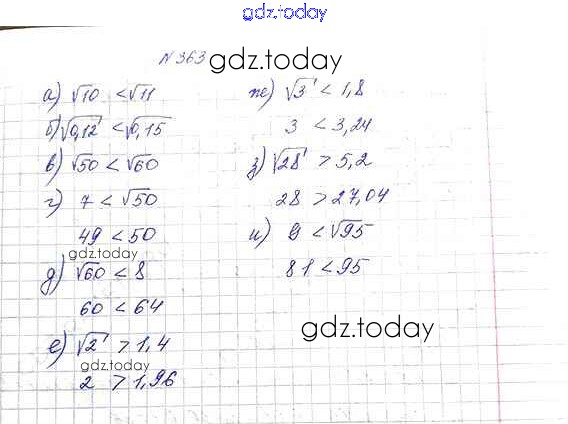 gdz.today
N 363
gdz.today
а) √10 < √11
б) √0,12 < √0,15
в) √50 < √60
г) 7 < √50
49 < 50
gdz.today
д) √60 < 8
60 < 64
е) √2 > 1,4
2 > 1,96
ж) √3 < 1,8
3 < 3,24
з) √28 > 5,2
28 > 27,04
и) 9 < √95
81 < 95
gdz.today